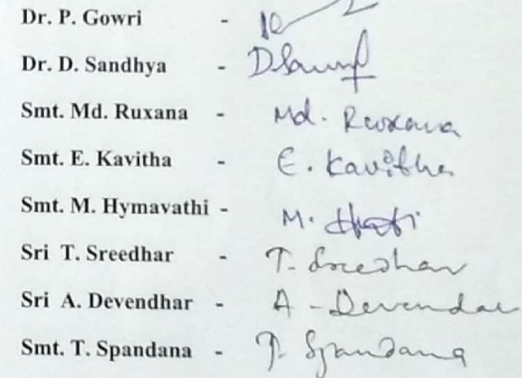 Dr. P. Gowri -
Dr. D. Sandhya -
Smt. Md. Ruxana - Md. Ruxana
Smt. E. Kavitha - E. Kavitha
Smt. M. Hymavathi - M.
Sri T. Sreedhar - T. Sreedhar
Sri A. Devendhar - A - Devendar
Smt. T. Spandana - T. Spandana